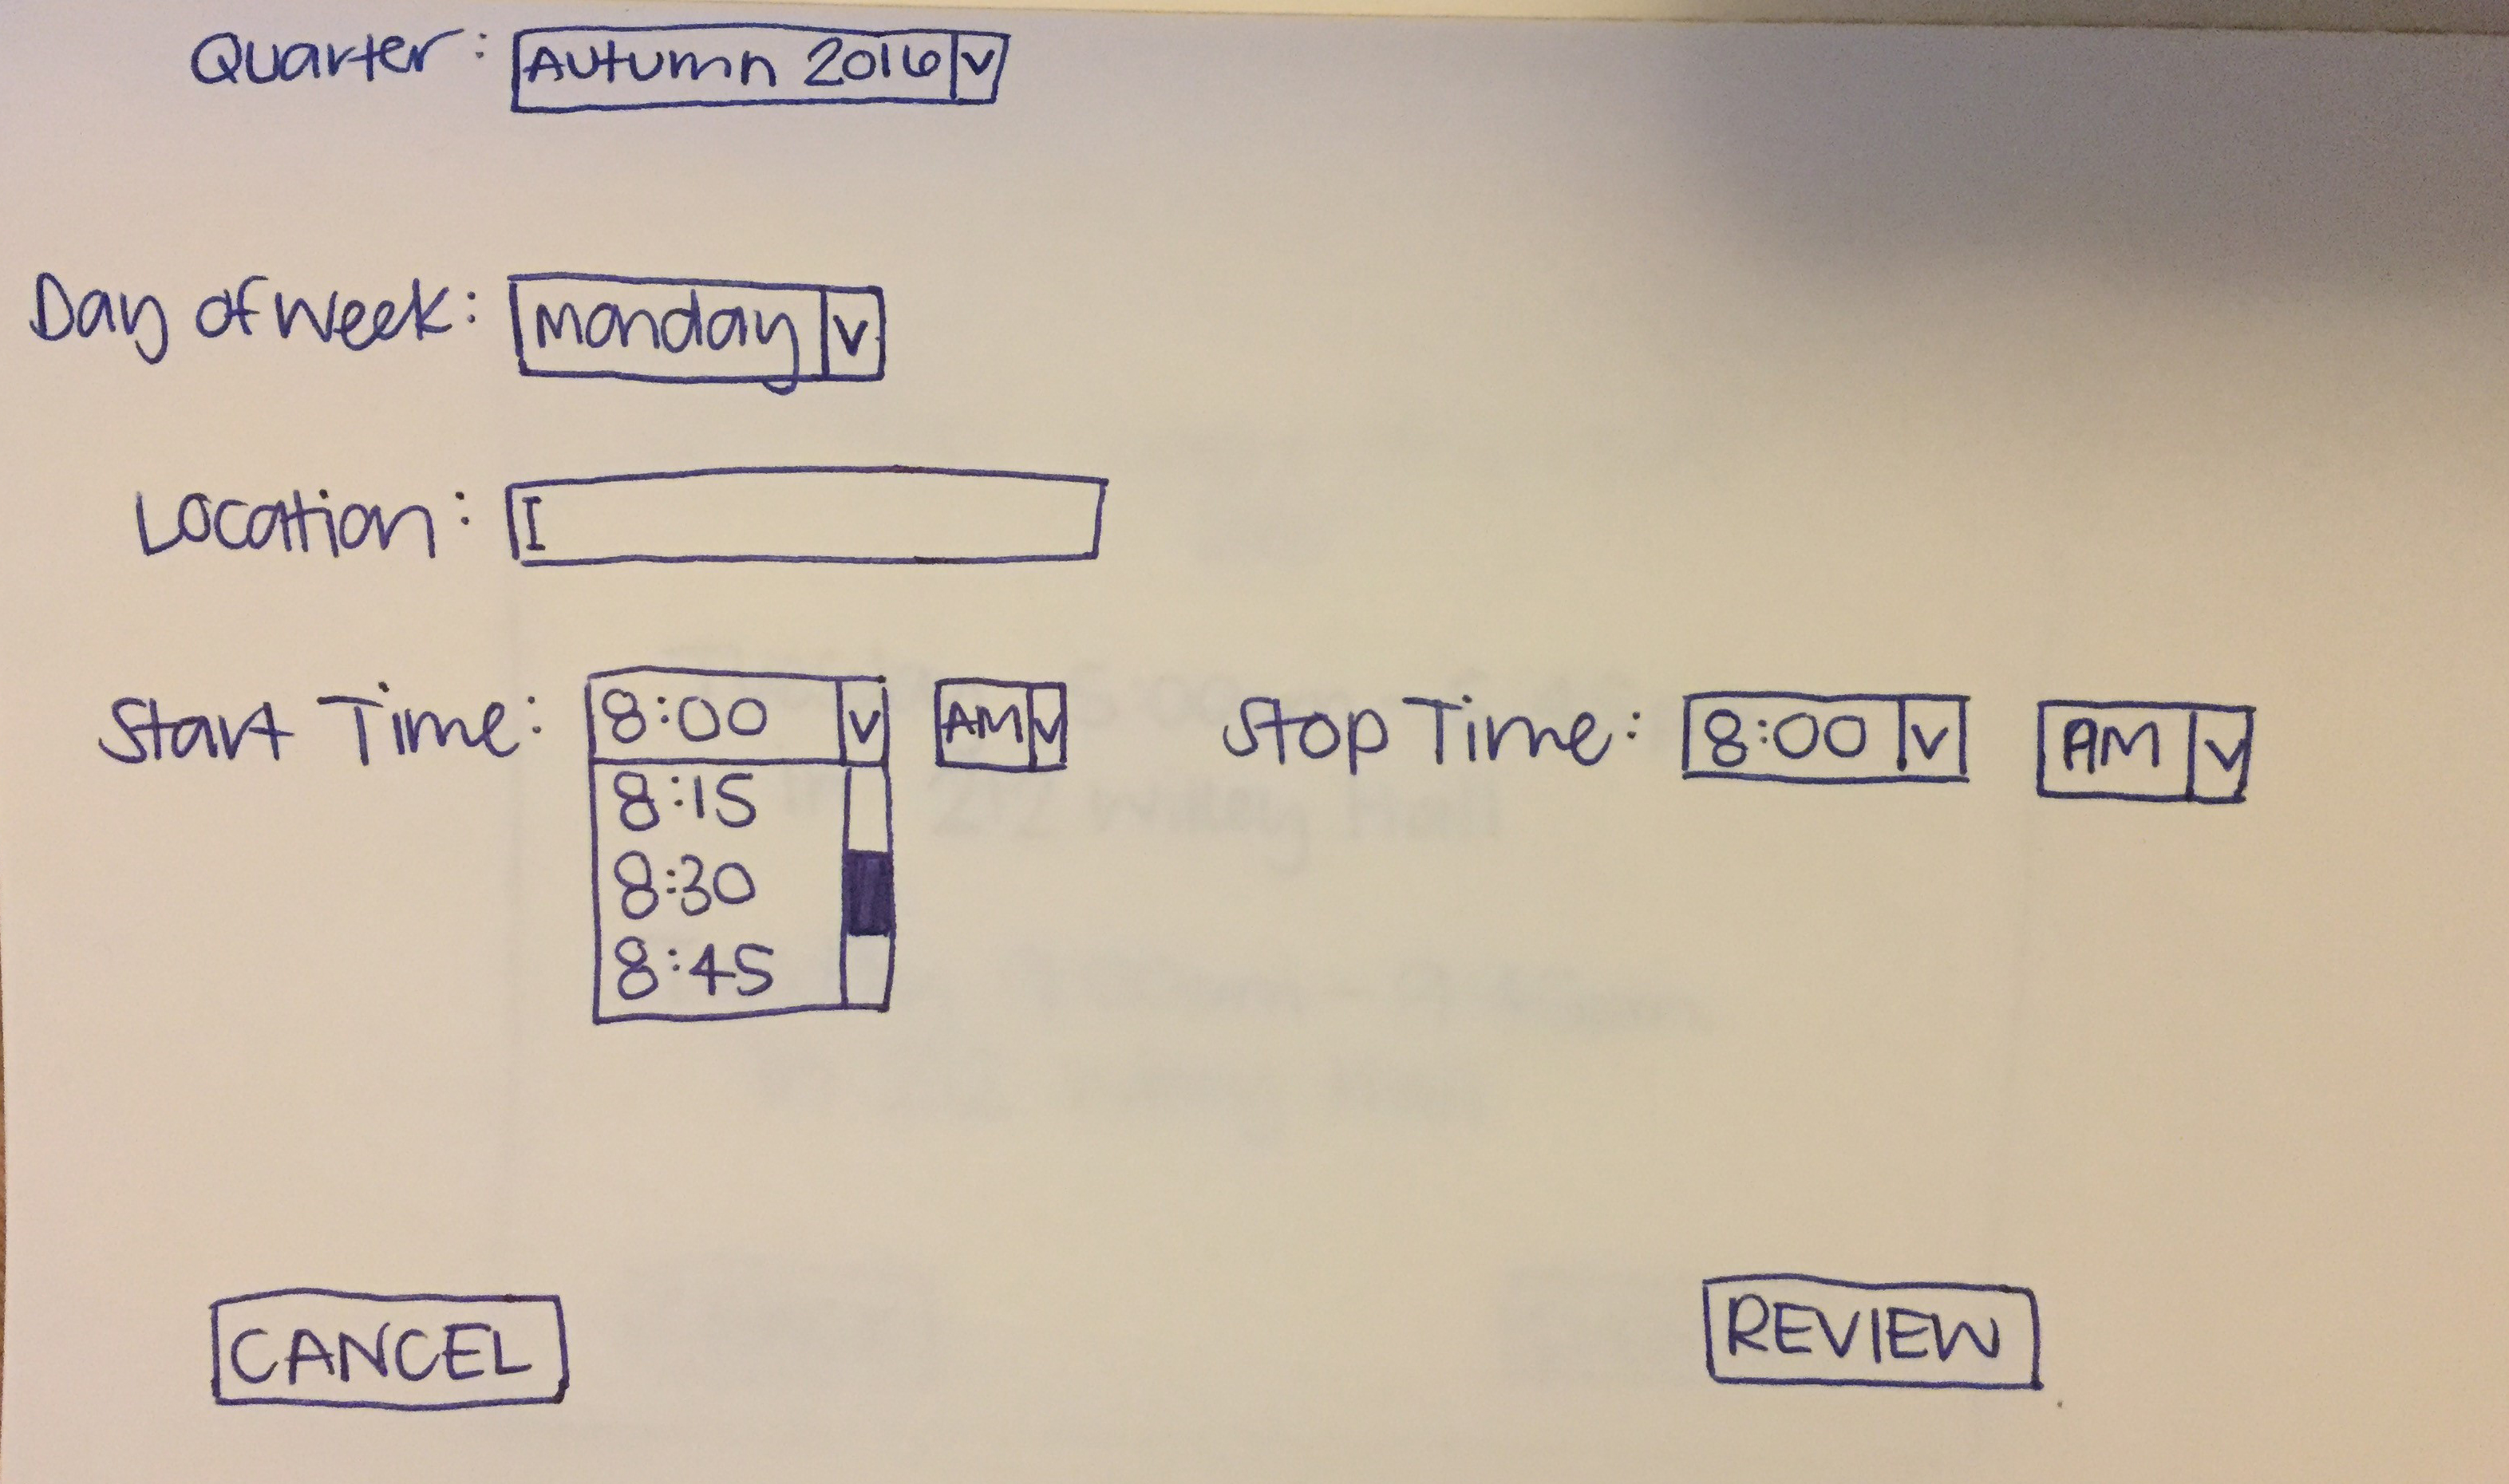 Quarter: Autumn 2016 v
Day of week: Monday v
Location: I
Start Time: 8:00 v AM v Stop Time: 8:00 v AM v
8:15
8:30
8:45
CANCEL REVIEW